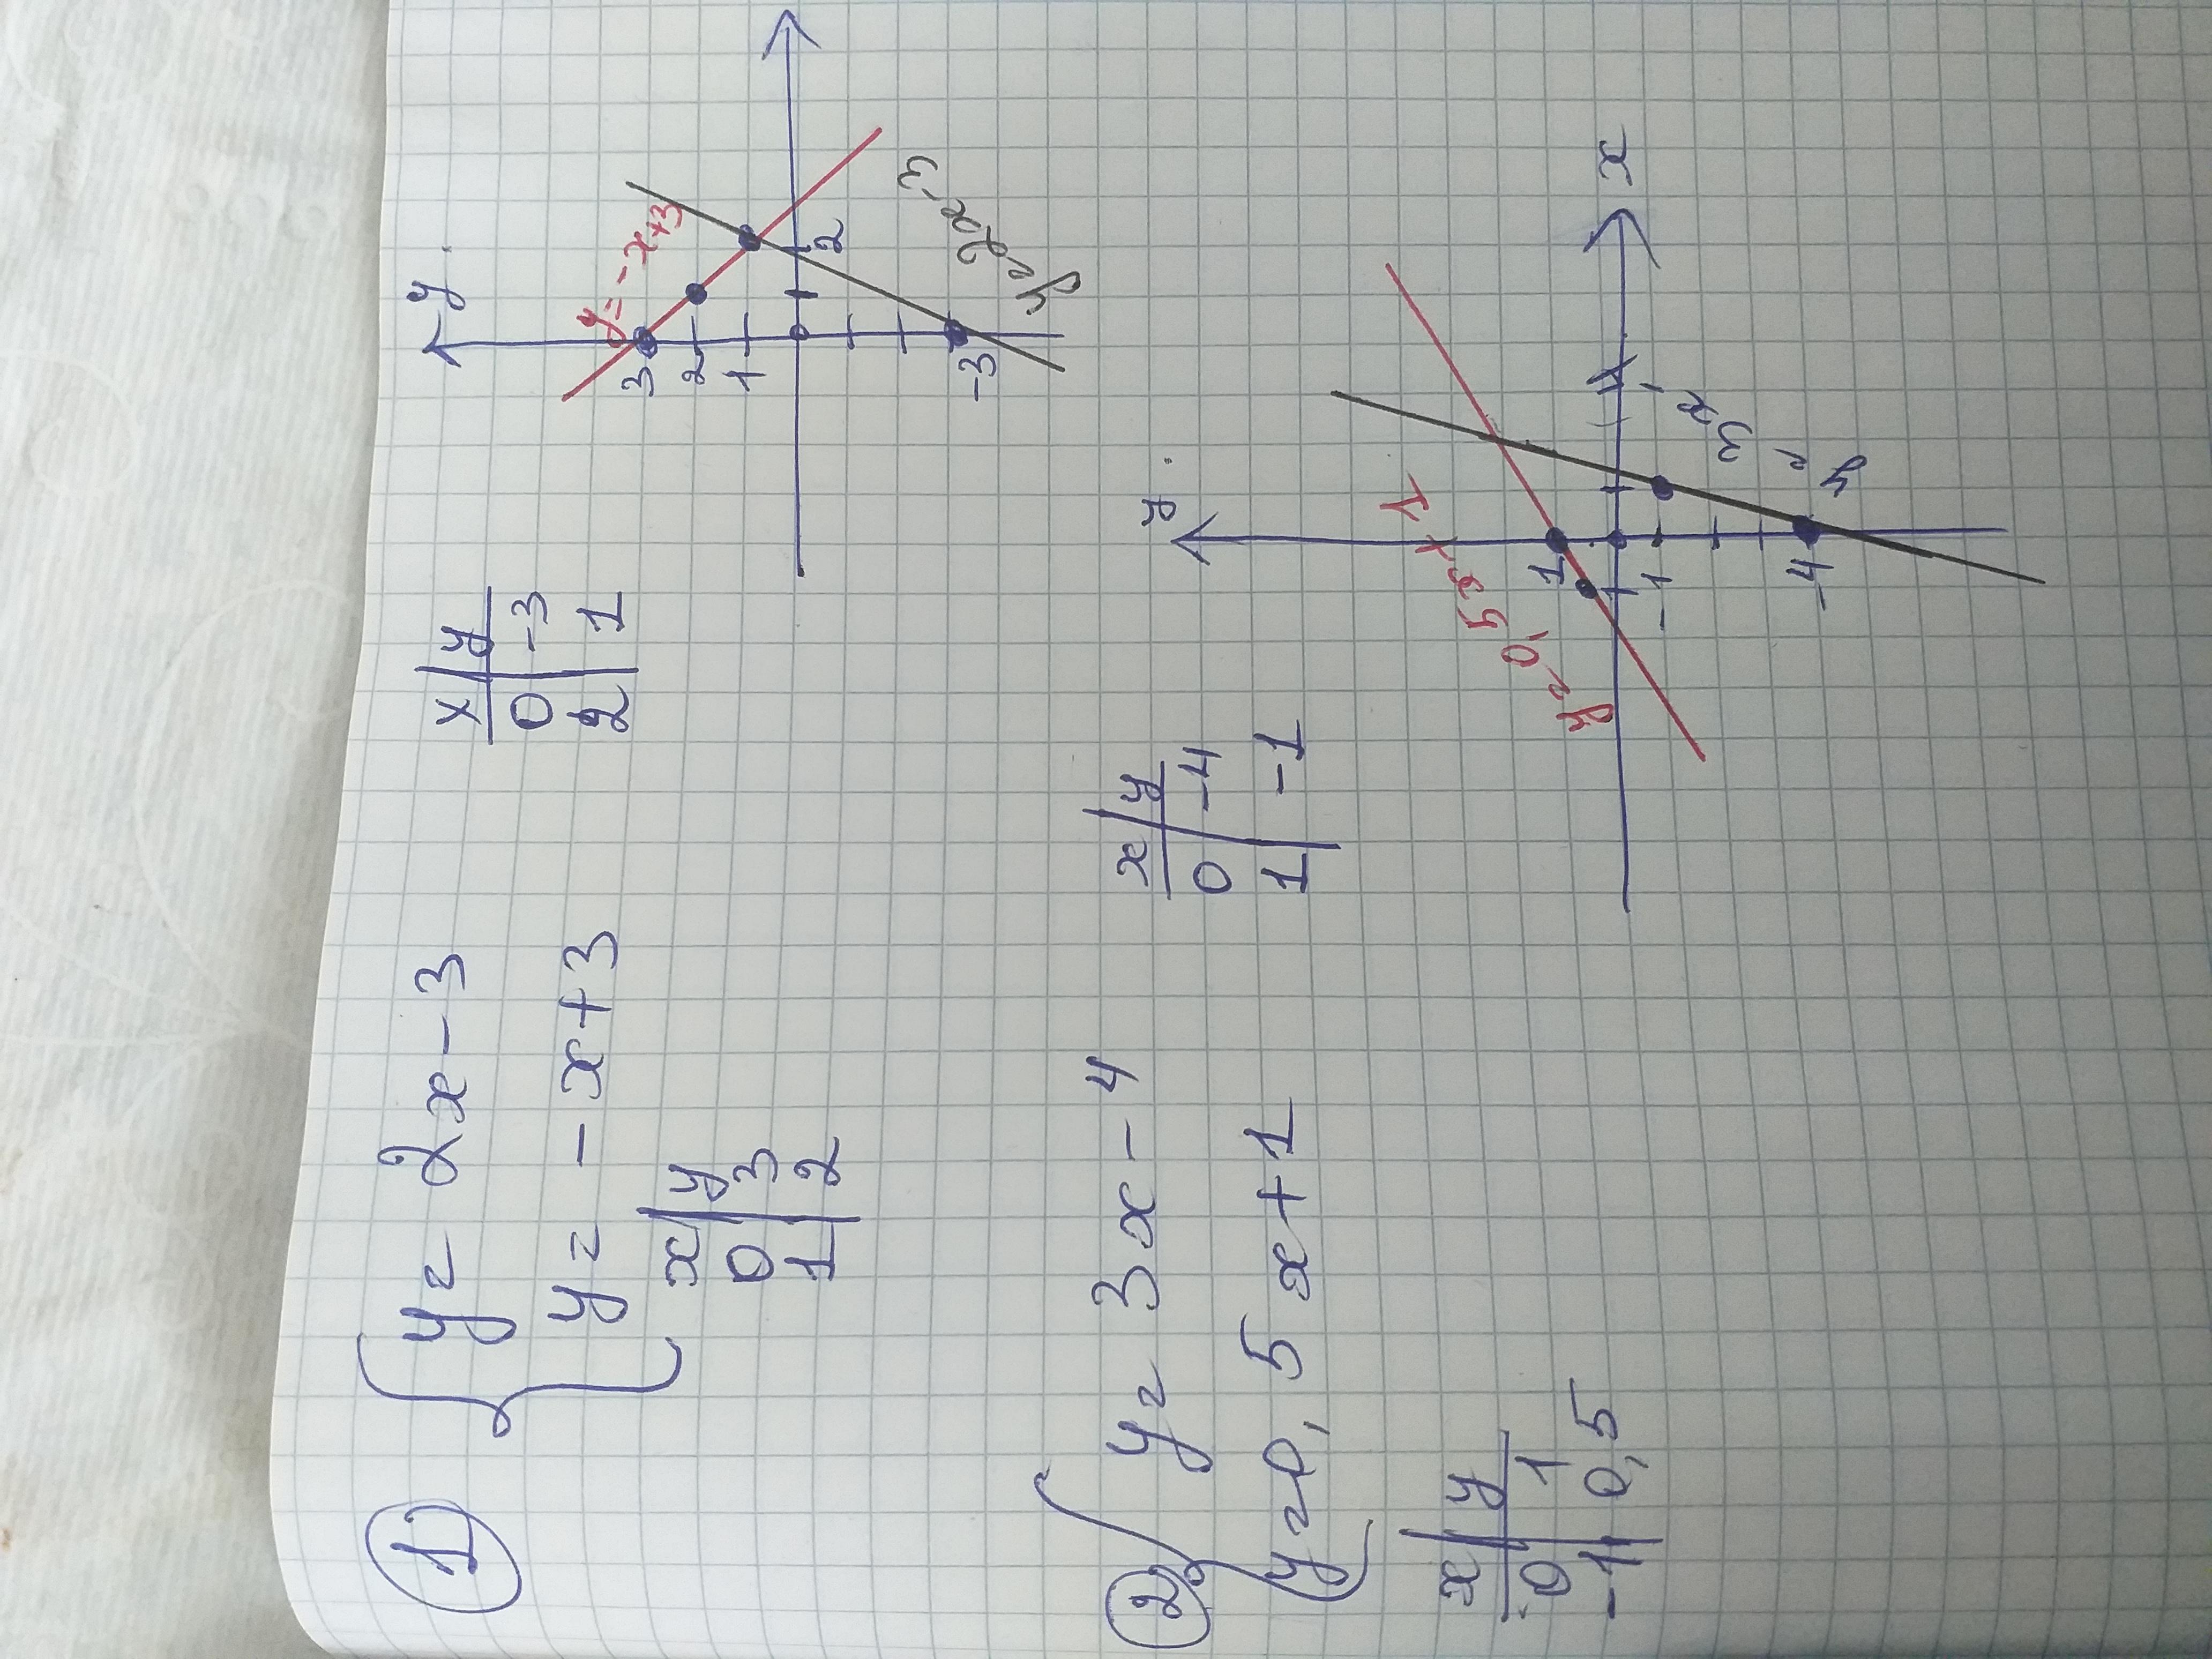 1
y = 2x - 3
y = - x + 3
x y
0 3
1 2
x y
0 -3
2 1
y
3
2
1
2
-3
y = - x + 3
y = 2x - 3
2
y = 3x - 4
y = 0,5x + 1
x y
0 1
-1 0,5
x y
0 -4
1 -1
y
x
1
-1
-4
y = 0,5x + 1
y = 3x -